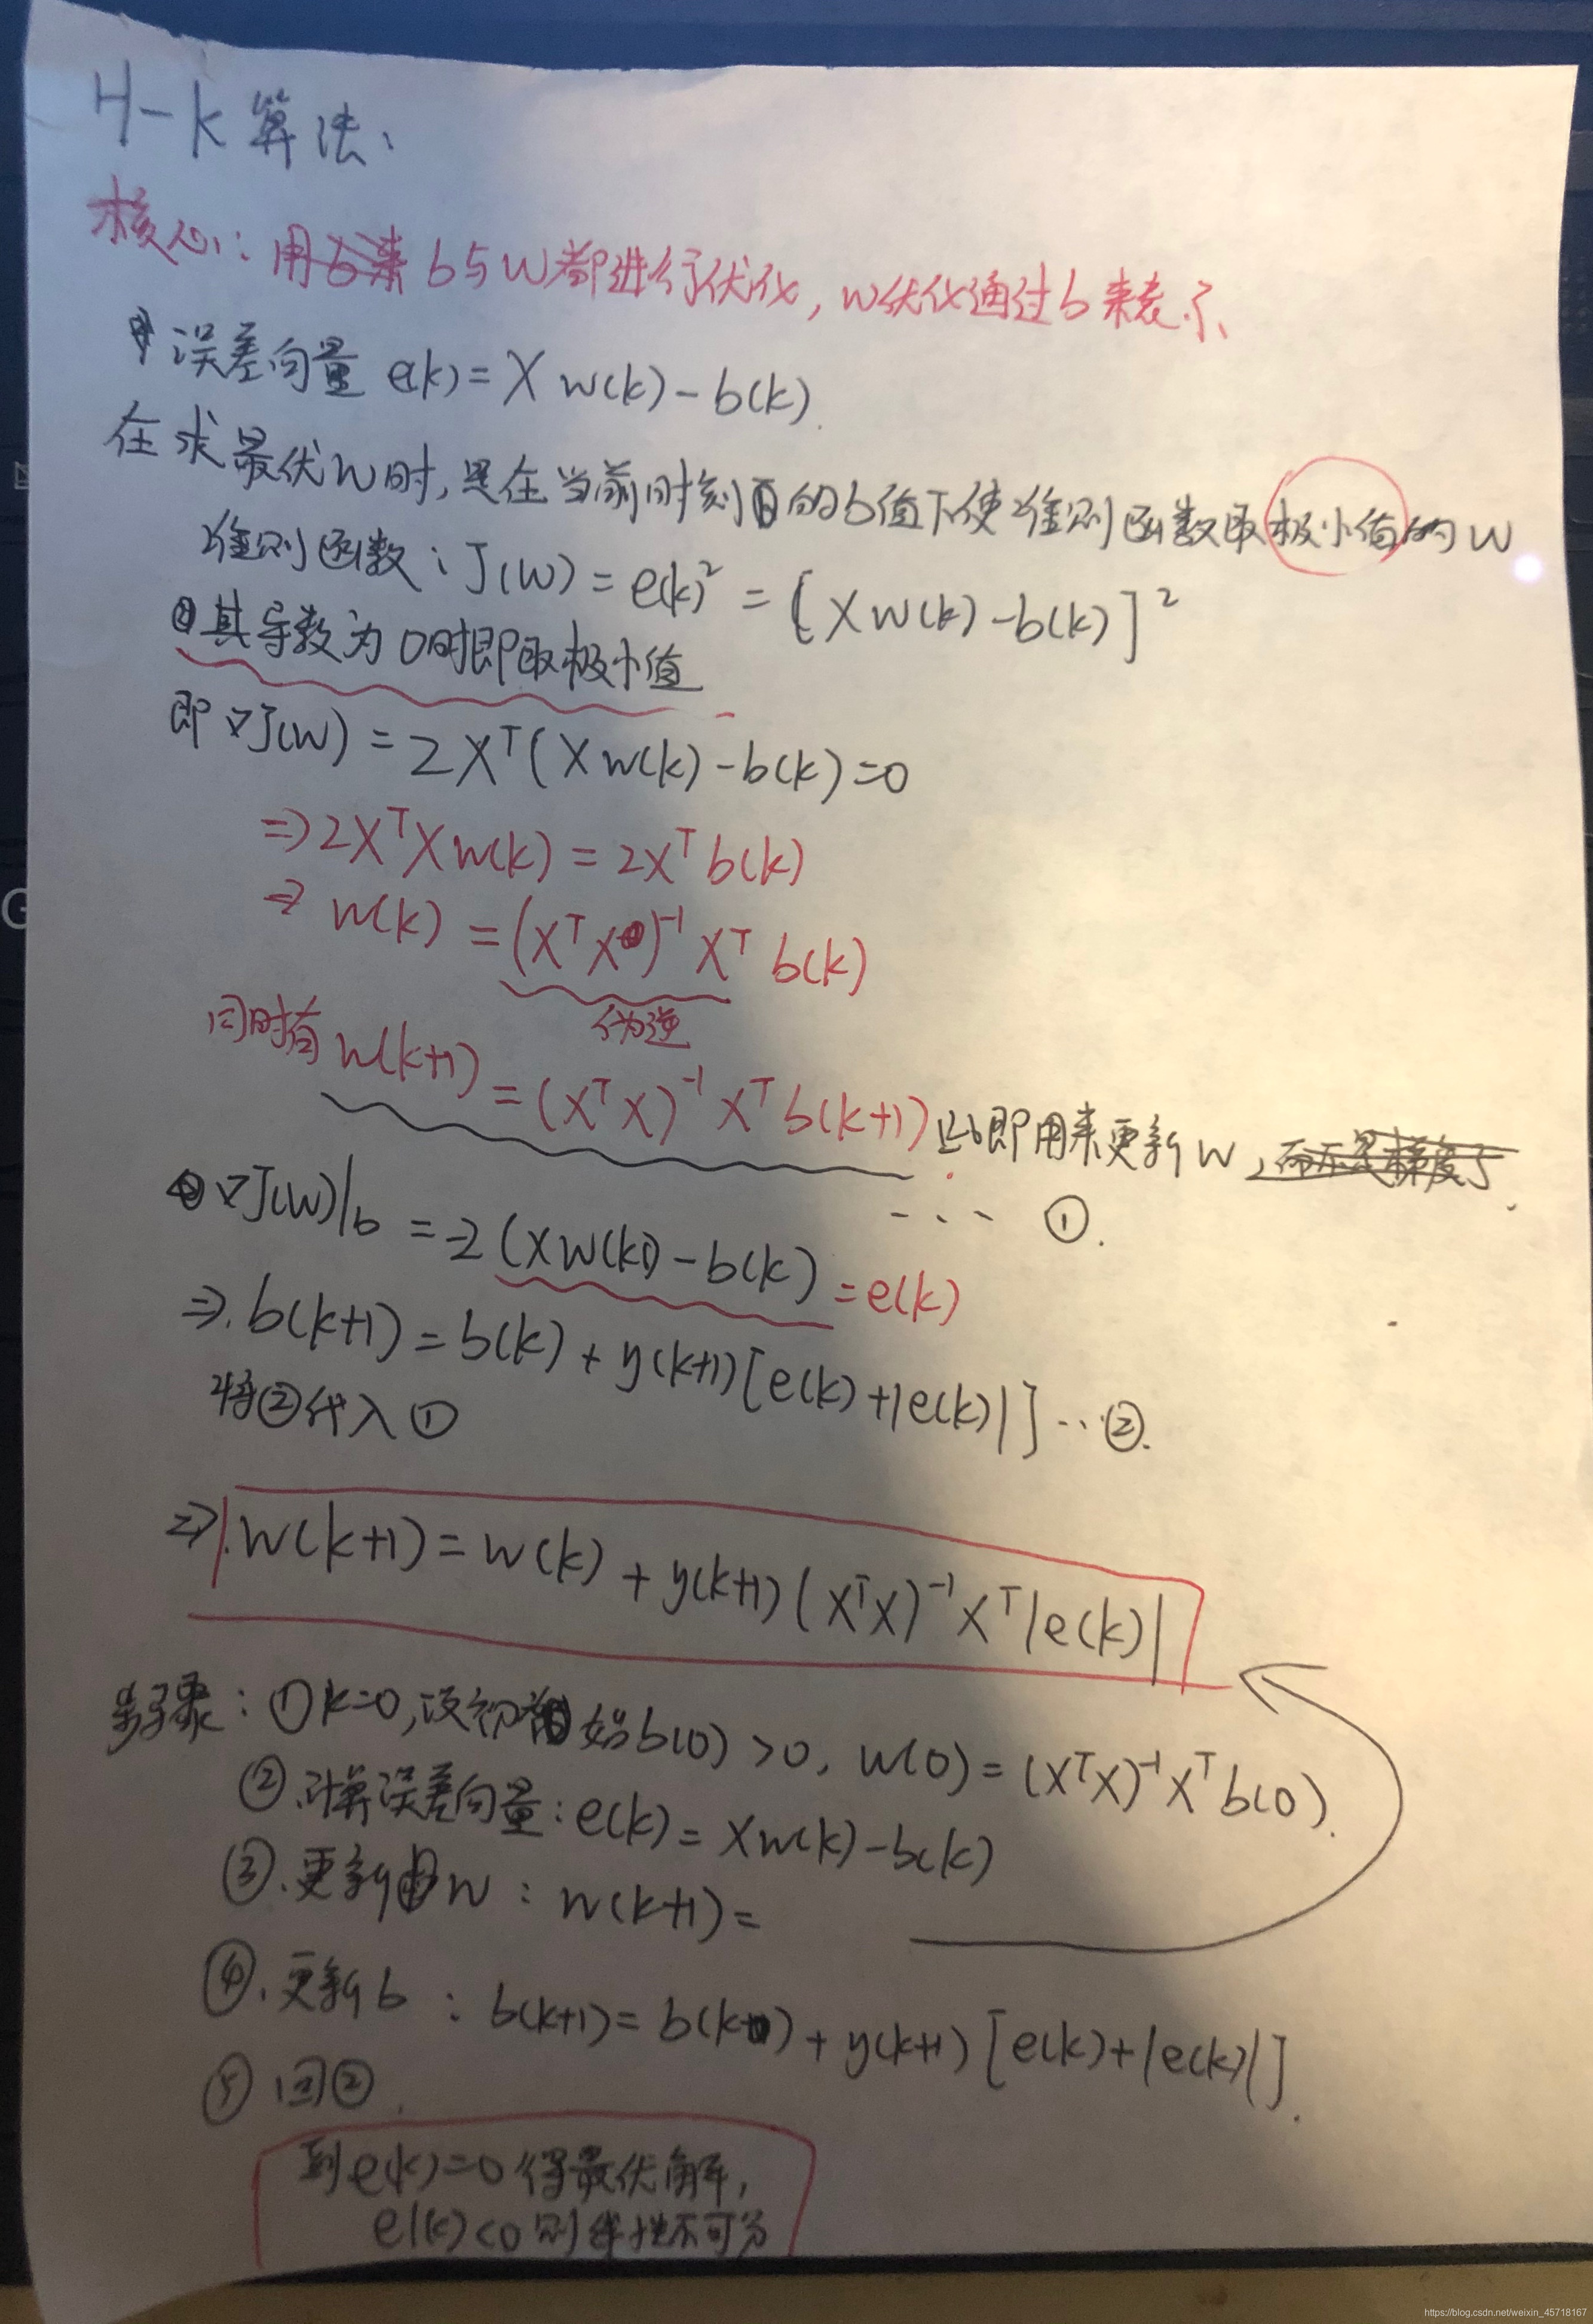 H-k算法、
核心:用b来 b与W都进行优化,w优化通过b来表示
误差向量 e(k)=Xw(k)-b(k).
在求最优W时,是在当前时刻的b值下使准则函数取极小值的W
准则函数:J(W)=e(k)²=[Xw(k)-b(k)]²
其导数为0时即取极小值
即▽J(W)=2Xᵀ(Xw(k)-b(k)=0
⇒2XᵀXw(k)=2Xᵀb(k)
⇒w(k)=(XᵀX)⁻¹Xᵀb(k)
伪逆
同时有w(k+1)=(XᵀX)⁻¹Xᵀb(k+1) 此即用来更新W,而不是梯度了.
--- ①.
▽J(W)|b=-2(Xw(k)-b(k))=e(k)
⇒.b(k+1)=b(k)+y(k+1)[e(k)+|e(k)|]…②.
将②代入①
⇒.w(k+1)=w(k)+y(k+1)(XᵀX)⁻¹Xᵀ|e(k)|
步骤:①k=0,设初始b(0)>0,w(0)=(XᵀX)⁻¹Xᵀb(0).
②.计算误差向量:e(k)=Xw(k)-b(k)
③.更新W:w(k+1)=
④.更新b:b(k+1)=b(k)+y(k+1)[e(k)+|e(k)|].
⑤回②.
到e(k)=0得最优解,
e(k)<0则线性不可分
https://blog.csdn.net/weixin_45718167